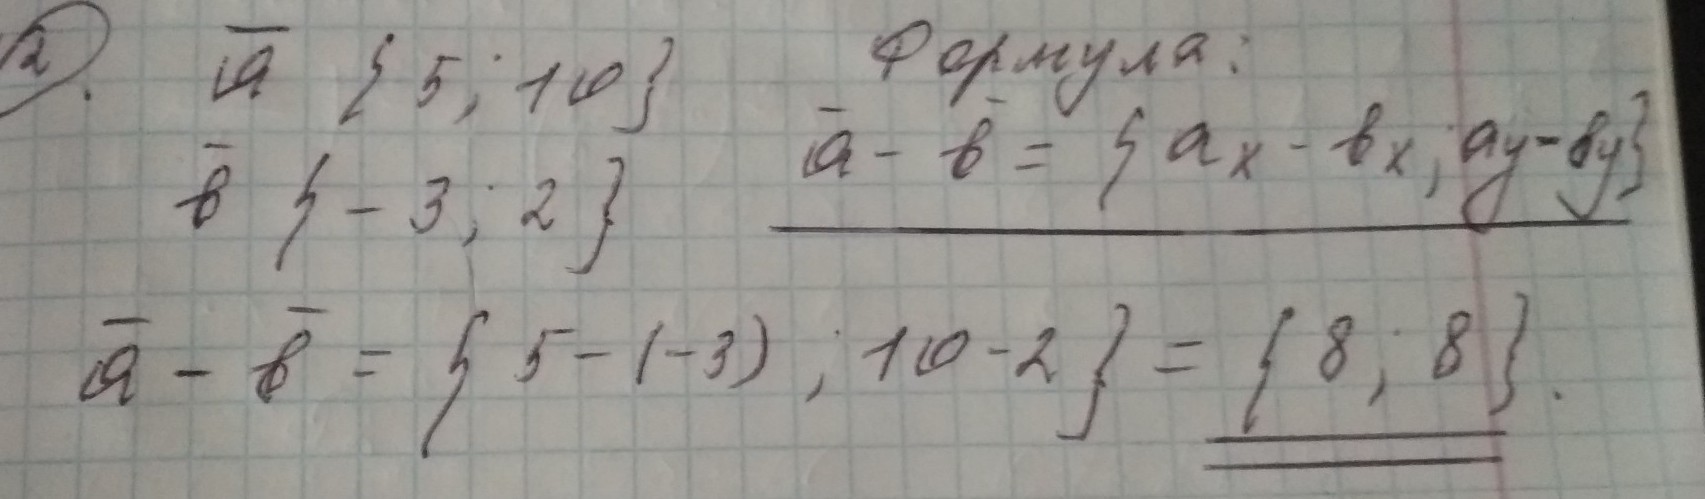 2.
a̅ {5; 10}
b̅ {-3; 2}
Формула:
a̅ - b̅ = {ax - bx; ay - by}
a̅ - b̅ = {5-(-3); 10-2} = {8; 8}.